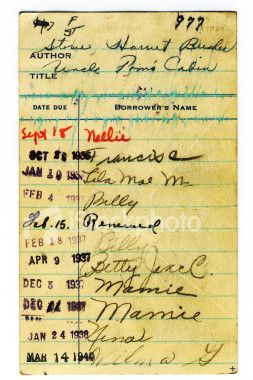 F
977
St
AUTHOR Stowe, Harriet Beecher
TITLE Uncle Tom's Cabin
DATE DUE BORROWER'S NAME
Sept 18 Nellie
OCT 28 1936 Francis C
JAN 1937 Lila Mae M
FEB 4 1937 Billy
Feb. 15. Renewed
iStockphoto
FEB 18 1937 Billy
APR 9 1937 Betty Jane C.
DEC 5 1937 Mamie
DEC 1937 Mamie
JAN 24 1938 Nina
MAR 14 1940 Wilma G